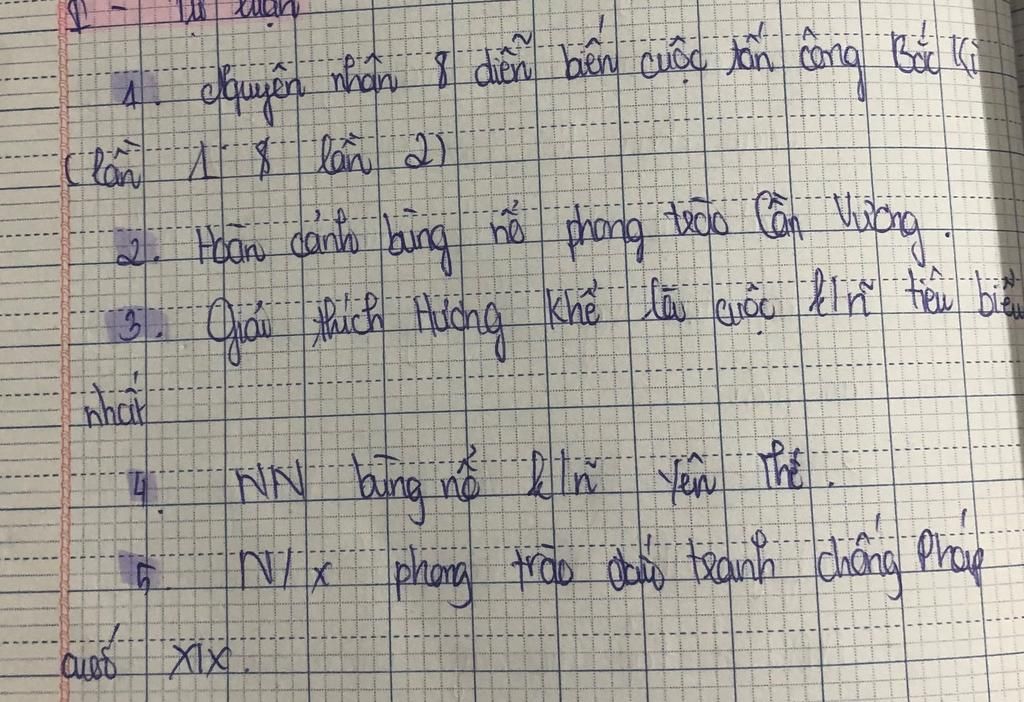 I - Tự luận
1. Nguyên nhân & diễn biến cuộc tấn công Bắc Kì
(lần 1 & lần 2)
2. Hoàn cảnh bùng nổ phong trào Cần Vương.
3. Giải thích Hương Khê là cuộc k/n tiêu biểu
nhất
4. NN bùng nổ k/n Yên Thế.
5 N/x phong trào đấu tranh chống Pháp
cuối XIX.